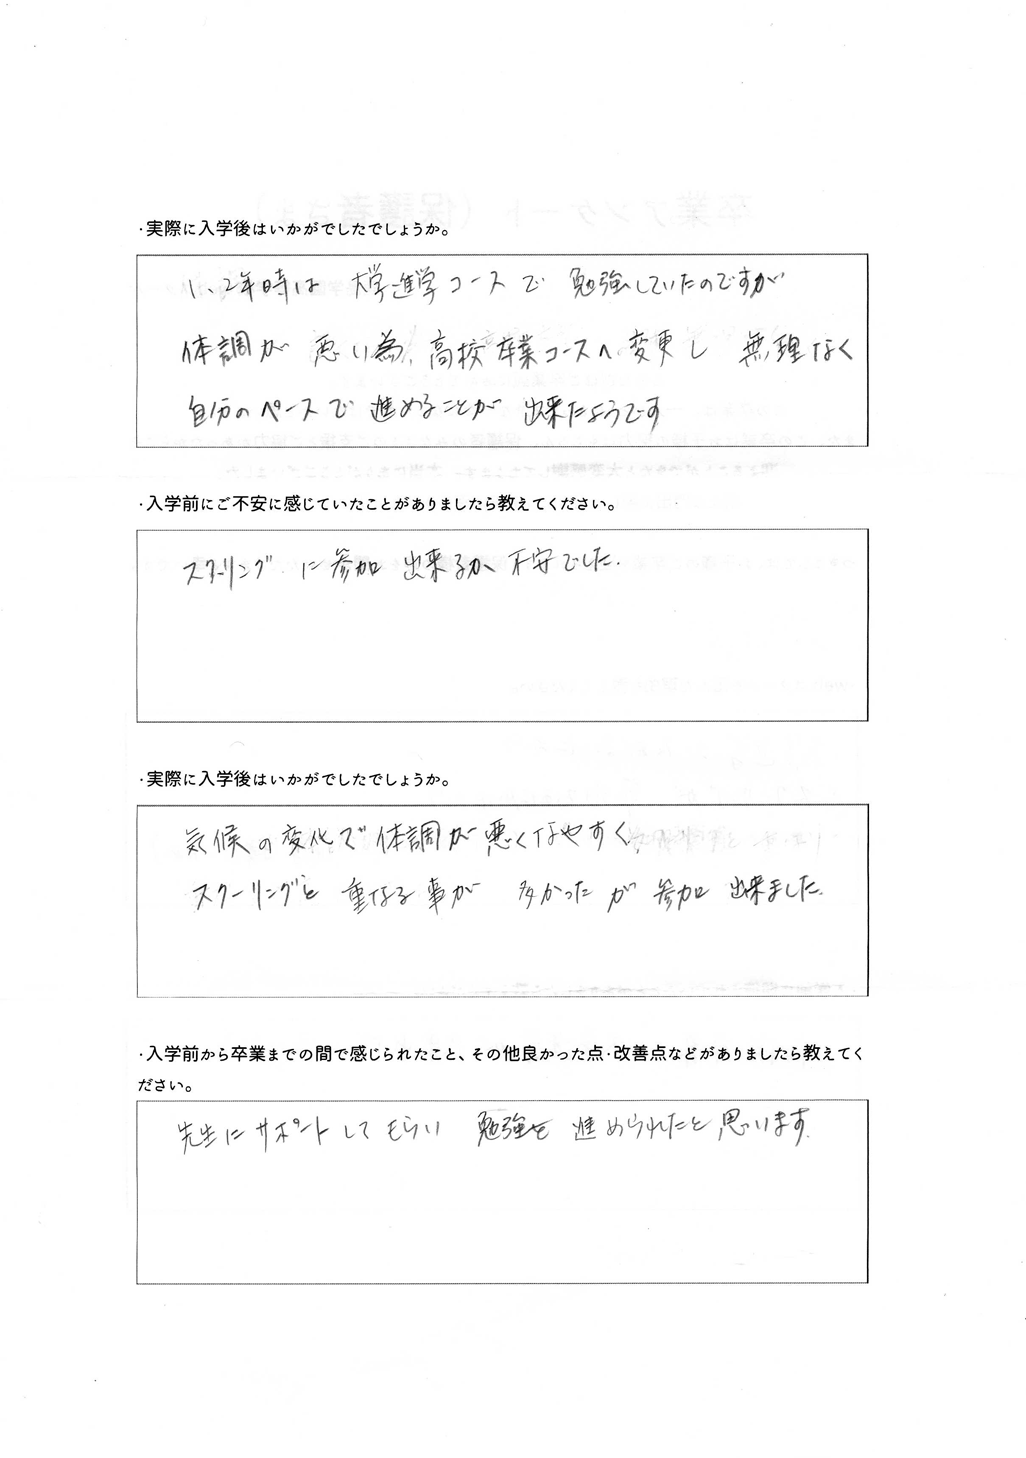 ・実際に入学後はいかがでしたでしょうか。
1、2年時は 大学進学コースで 勉強していたのですが
体調が 悪い為、高校卒業コースへ変更し 無理なく
自分のペースで 進めることが 出来たようです
・入学前にご不安に感じていたことがありましたら教えてください。
スクーリング に参加 出来るか 不安でした.
・実際に入学後はいかがでしたでしょうか。
気候の変化で体調が悪くなやすく、
スクーリングと 重なる事が 多かったが 参加 出来ました.
・入学前から卒業までの間で感じられたこと、その他良かった点・改善点などがありましたら教えてく
ださい。
先生にサポートしてもらい 勉強を 進められたと思います.